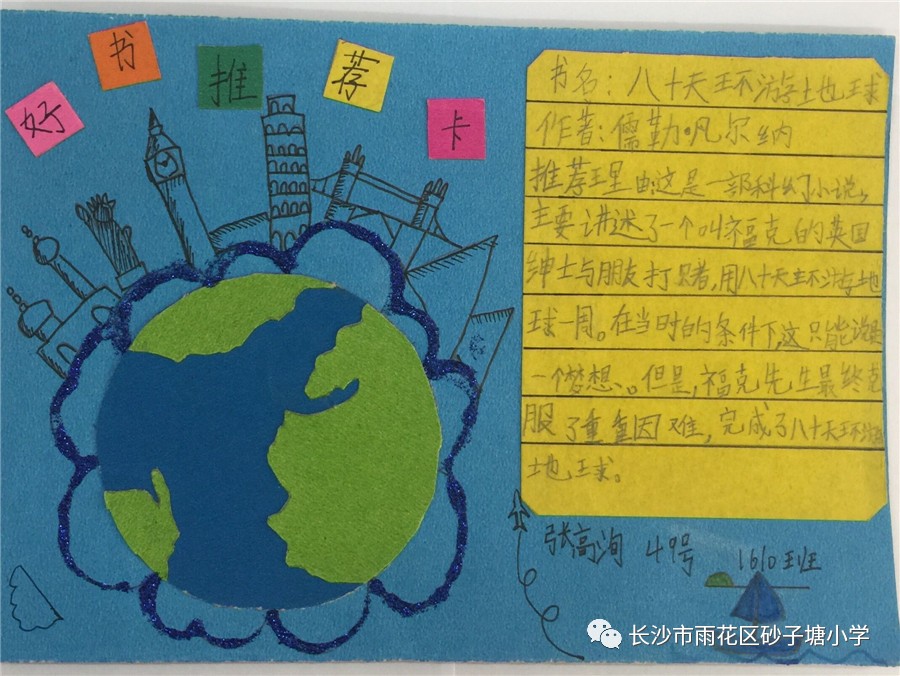 好书推荐卡
书名：八十天环游地球
作者：儒勒·凡尔纳
推荐理由：这是一部科幻小说，
主要讲述了一个叫福克的英国
绅士与朋友打赌，用八十天环游地
球一周。在当时的条件下，这只能说是
一个梦想。但是，福克先生最终克
服了重重因难，完成了八十天环游
地球。
张高洵 49号 1610班
长沙市雨花区砂子塘小学